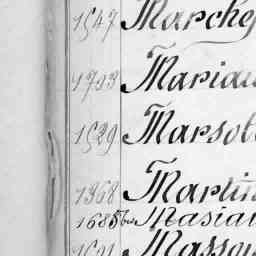 1547 Marche
1793 Mariau
1529 Marsol
1368 Martin
1685bis Masia
1591 Masson